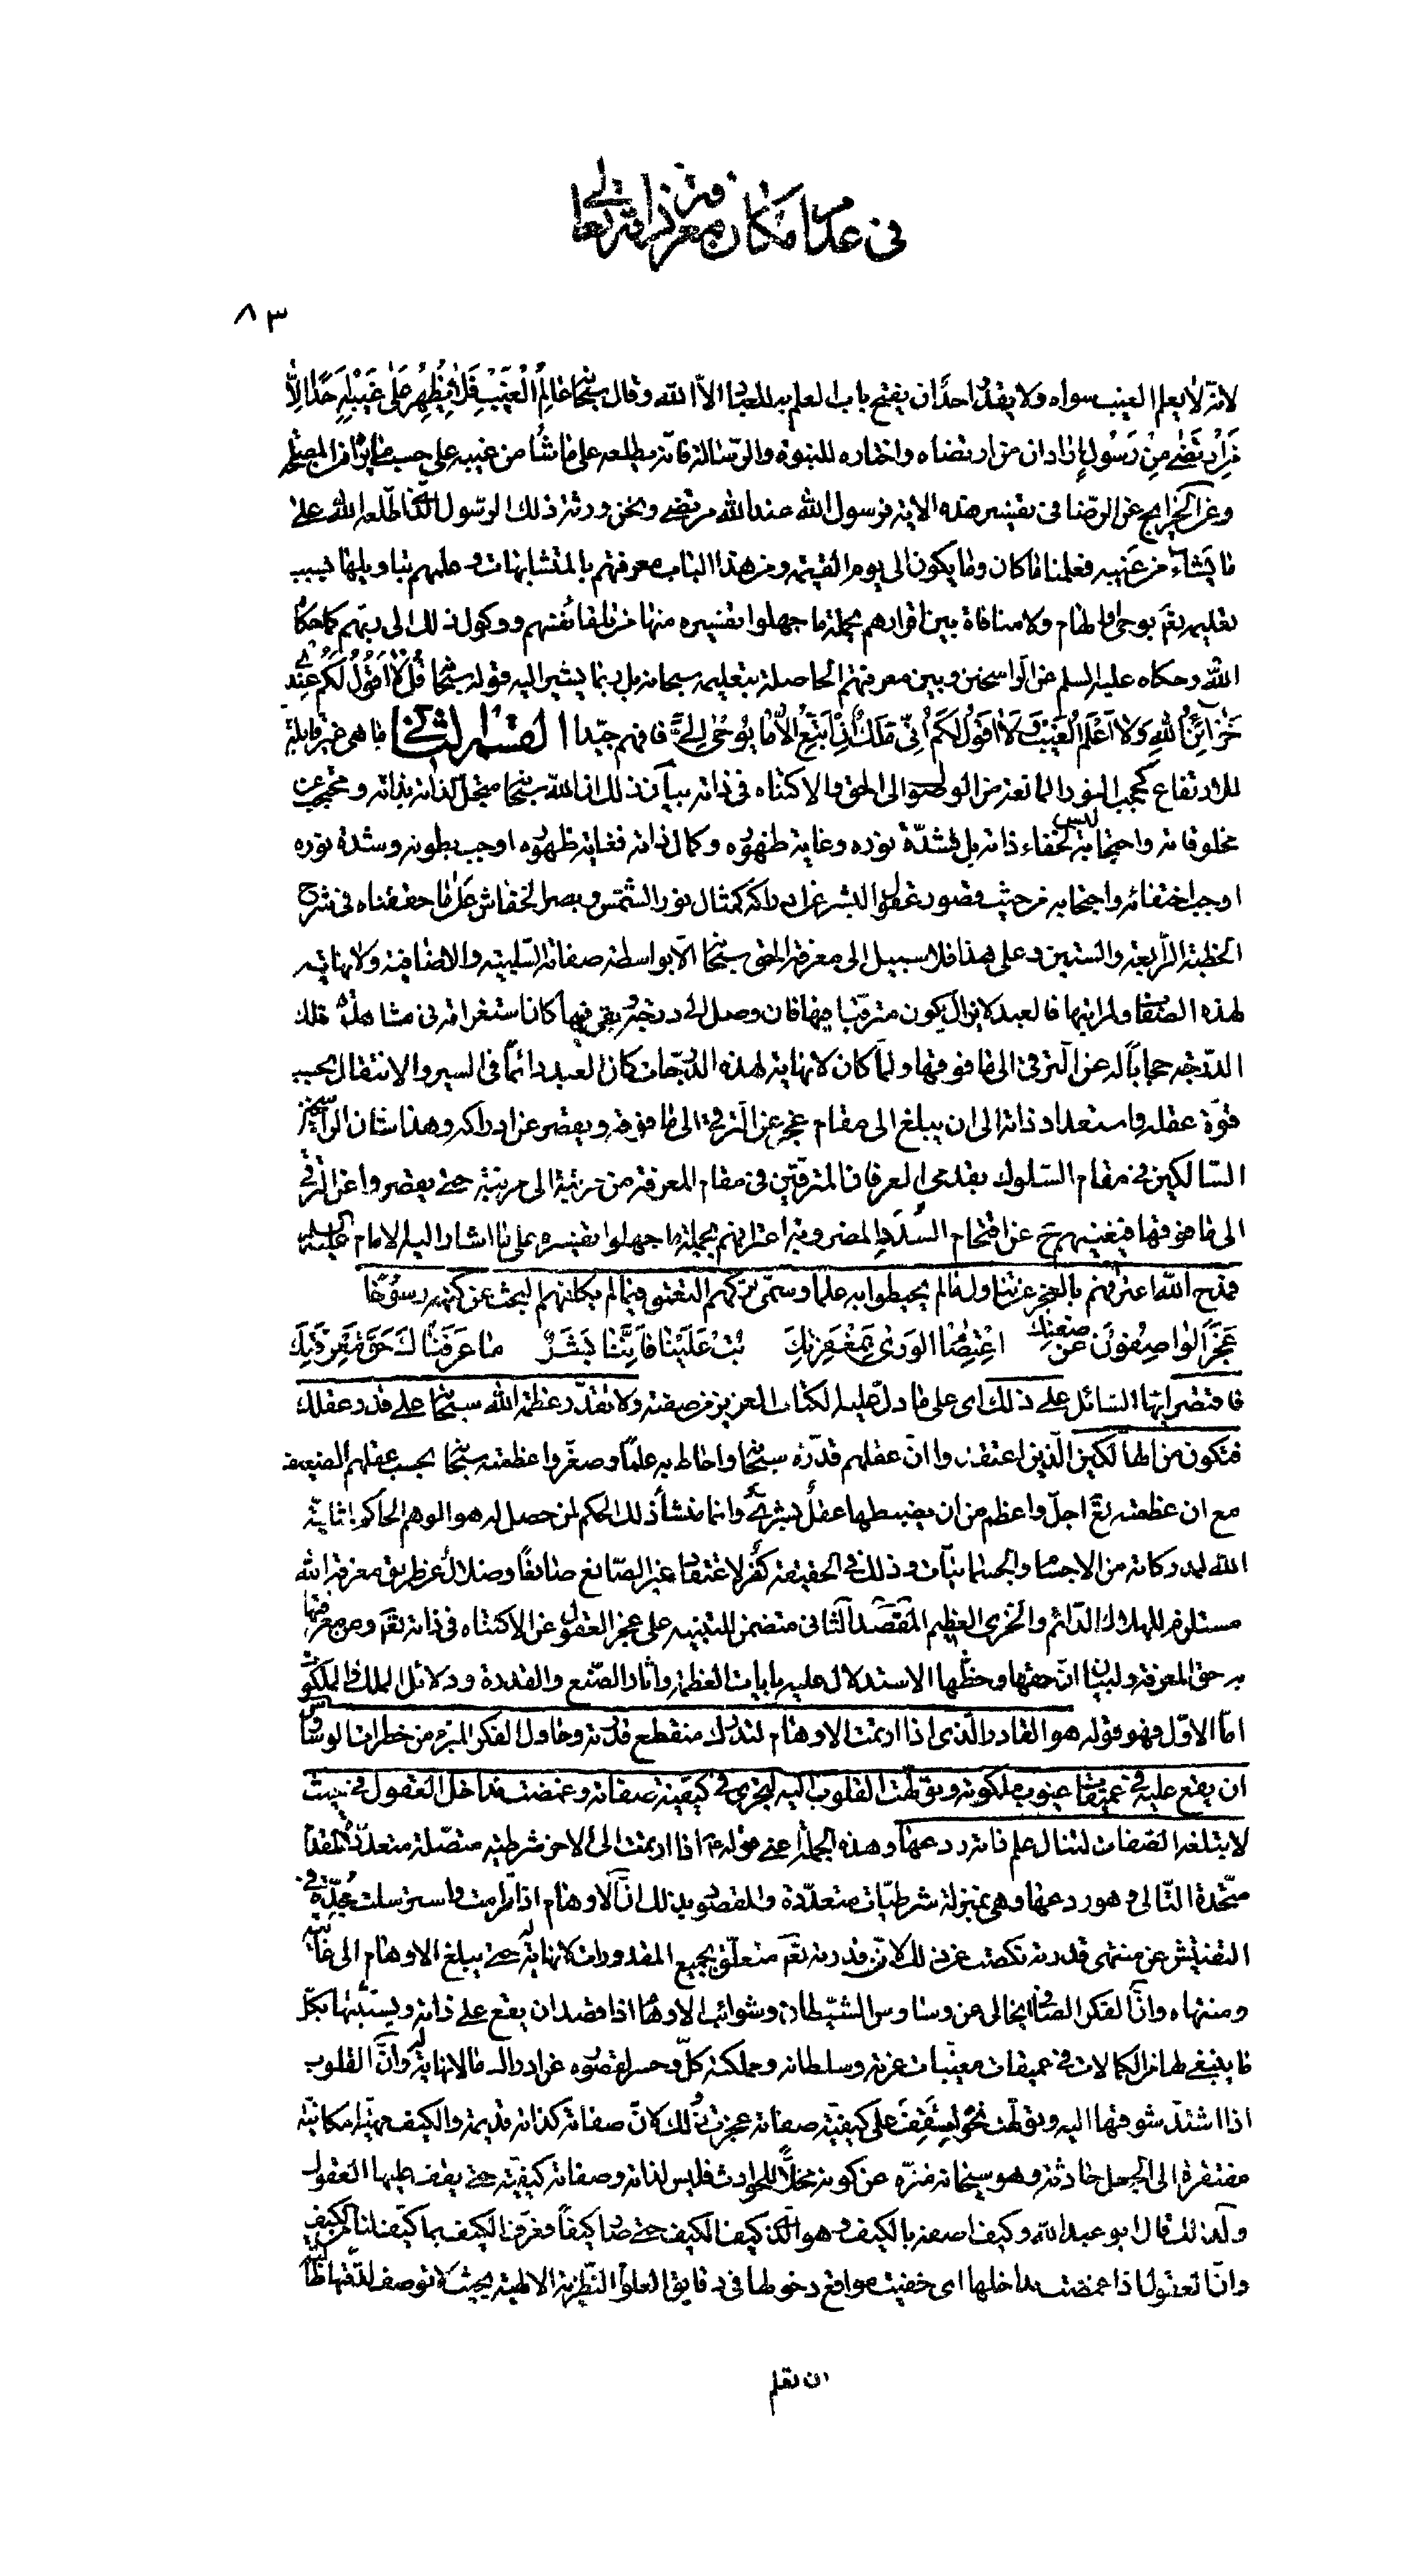 في عدم امكان معرفة ذاته تعالى
٨٣
لانه لا يعلم الغيب سواه ولا يقدر احد ان يفتح باب العلم به للعباد الا الله وقال سبحانه عالم الغيب فلا يظهر على غيبه احدا الا
من ارتضى من رسول اراد ان من ارتضاه واختاره للنبوة والرسالة فانه يطلعه على ما شاء من غيبه على حسب ما يراه من المصلحة
وعن الخرايج عن الرضا في تفسير هذه الاية فرسول الله عند الله مرتضى ونحن ورثة ذلك الرسول الذي اطلعه الله على
ما يشاء من غيبه فعلمنا ما كان وما يكون الى يوم القيمة ومن هذا الباب معرفتهم بالمتشابهات وعلمهم بتاويلها بسبب
تعليمه تعم بوحى والهام ولا منافاة بين اقرارهم بجملة ما جهلوا تفسيره منها من تلقاء انفسهم ووكول ذلك الى ربهم كما حكاه
الله وحكاه عليه السلم من الراسخين وبين معرفتهم الحاصلة بتعليمه سبحانه بل ربما يشير اليه قوله سبحانه قل لا اقول لكم عندي
خزائن الله ولا اعلم الغيب ولا اقول لكم اني ملك ان اتبع الا ما يوحى الي فافهم جيدا القسم الثاني ما هي غير قابلة
للارتفاع كحجب النور المانعة من الوصول الى الحق والاكتناه في ذاته بيان ذلك ان الله سبحانه متجل لذاته بذاته ومحتجب عن
مخلوقاته واحتجابه ليس لخفاء ذاته بل لشدة نوره وغاية ظهوره وكمال ذاته فغاية ظهوره اوجب بطونه وشدة نوره
اوجب اختفائه واحتجابه من حيث قصور عقول البشر عن ادراكه كمثال نور الشمس وبصر الخفاش على ما حققناه في شرح
الخطبة الرابعة والستين وعلى هذا فلا سبيل الى معرفة الحق سبحانه الا بواسطة صفاته السلبية والاضافية ولا نهاية
لهذه الصفات ولمراتبها فالعبد لا يزال يكون مترقيا فيها فان وصل الى درجة وبقى فيها كان استغراقه في مشاهدة تلك
الدرجة حجابا له عن الترقي الى ما فوقها ولما كان لا نهاية لهذه الدرجات كان العبد دائما في السير والانتقال بحسب
قوة عقله واستعداد ذاته الى ان يبلغ الى مقام عجز عن الترقي الى ما فوقه ويقصر عن ادراكه وهذا شان الراسخين
السالكين في مقام السلوك بقدمي العرفان المترقين في مقام المعرفة من مرتبة الى مرتبة حتى يقصروا عن الترقي
الى ما فوقها فيغنيهم ح عن اقتحام السدد المضروبة اعترافهم بجملة ما جهلوا تفسيره على ما اشار اليه الامام عليه السلم
فمدح الله اعترافهم بالعجز عن تناول ما لم يحيطوا به علما وسمى تركهم التعمق فيما لم يكلفهم البحث عن كنهه رسوخا
عجز الواصفون عن صفتك اعتصام الورى بمغفرتك تب علينا فاننا بشر ما عرفناك حق معرفتك
فاقتصر ايها السائل على ذلك اى على ما دل عليه الكتاب العزيز من صفته ولا تقدر عظمة الله سبحانه على قدر عقلك
فتكون من الهالكين الذين اعتقدوا ان عقلهم قدره سبحانه واحاط به علما وصغروا عظمته سبحانه بحسب عقلهم الضعيف
مع ان عظمته تع اجل واعظم من ان يضبطها عقل بشري وانما منشأ ذلك الحكم لمن حصل له هو الوهم الحاكم بمثلية
الله لمدركاته من الاجسام والجسمانيات وذلك في الحقيقة كفر لاعتقاد غير الصانع صانعا وضلال عن طريق معرفة الله
مستلزم للهلاك الدائم والخزى العظيم المقصد الثاني متضمن للتنبيه على عجز العقول عن الاكتناه في ذاته تعم وعن معرفتها
به حق المعرفة ولبيان ان حقها وحظها الاستدلال عليه بايات العظمة واثار الصنع والقدرة ودلائل الملك والملكوت
اما الاول فهو قوله هو القادر الذى اذا ارتمت الاوهام لتدرك منقطع قدرته وحاول الفكر المبرء من خطرات الوساوس
ان يقع عليه في عميقات غيوب ملكوته وتولهت القلوب اليه لتجري في كيفية صفاته وغمضت مداخل العقول في حيث
لا تبلغه الصفات لتنال علم ذاته ردعها وهذه الجملة اعني قوله ع اذا ارتمت الى الاخر شرطية متصلة متعددة المقدم
متحدة التالي وهو ردعها وهي بمنزلة شرطيات متعددة والمقصود بذلك ان الاوهام اذا ترامت واسترسلت مجدة في
التفتيش عن منتهى قدرته نكصت عن ذلك لان قدرته تعم متعلق بجميع المقدورات لا نهاية له حتى يبلغ الاوهام الى غايته
ومنتهاه وان الفكر الصافي الخالى عن وساوس الشيطان وشوائب الاوهام اذا قصد ان يقع على ذاته ويستثبتها بكل
ما ينبغي لها من الكمالات في عميقات مغيبات عزته وسلطانه ومملكته كل وحسر لقصوره عن ادراك ما لا نهاية له وان القلوب
اذا اشتد شوقها اليه وتولهت نحوه ليقف على كيفية صفاته عجزت وذلك لان صفاته كذاته قديمة والكيف مهية امكانية
مفتقرة الى الجعل حادثة وهو سبحانه منزه عن كونه محلا للحوادث فليس لذاته وصفاته كيفية حتى يقف عليها العقول
ولذلك قال ابو عبد الله وكيف اصفه بالكيف وهو الذي كيف الكيف حتى صار كيفا فعرفت الكيف بما كيف لنا من الكيف
وان العقول اذا غمضت مداخلها اى خفيت مواقع دخولها في دقايق العلوم النظرية الالهية بحيث لا توصف لدقتها طالبة
ان تعلم